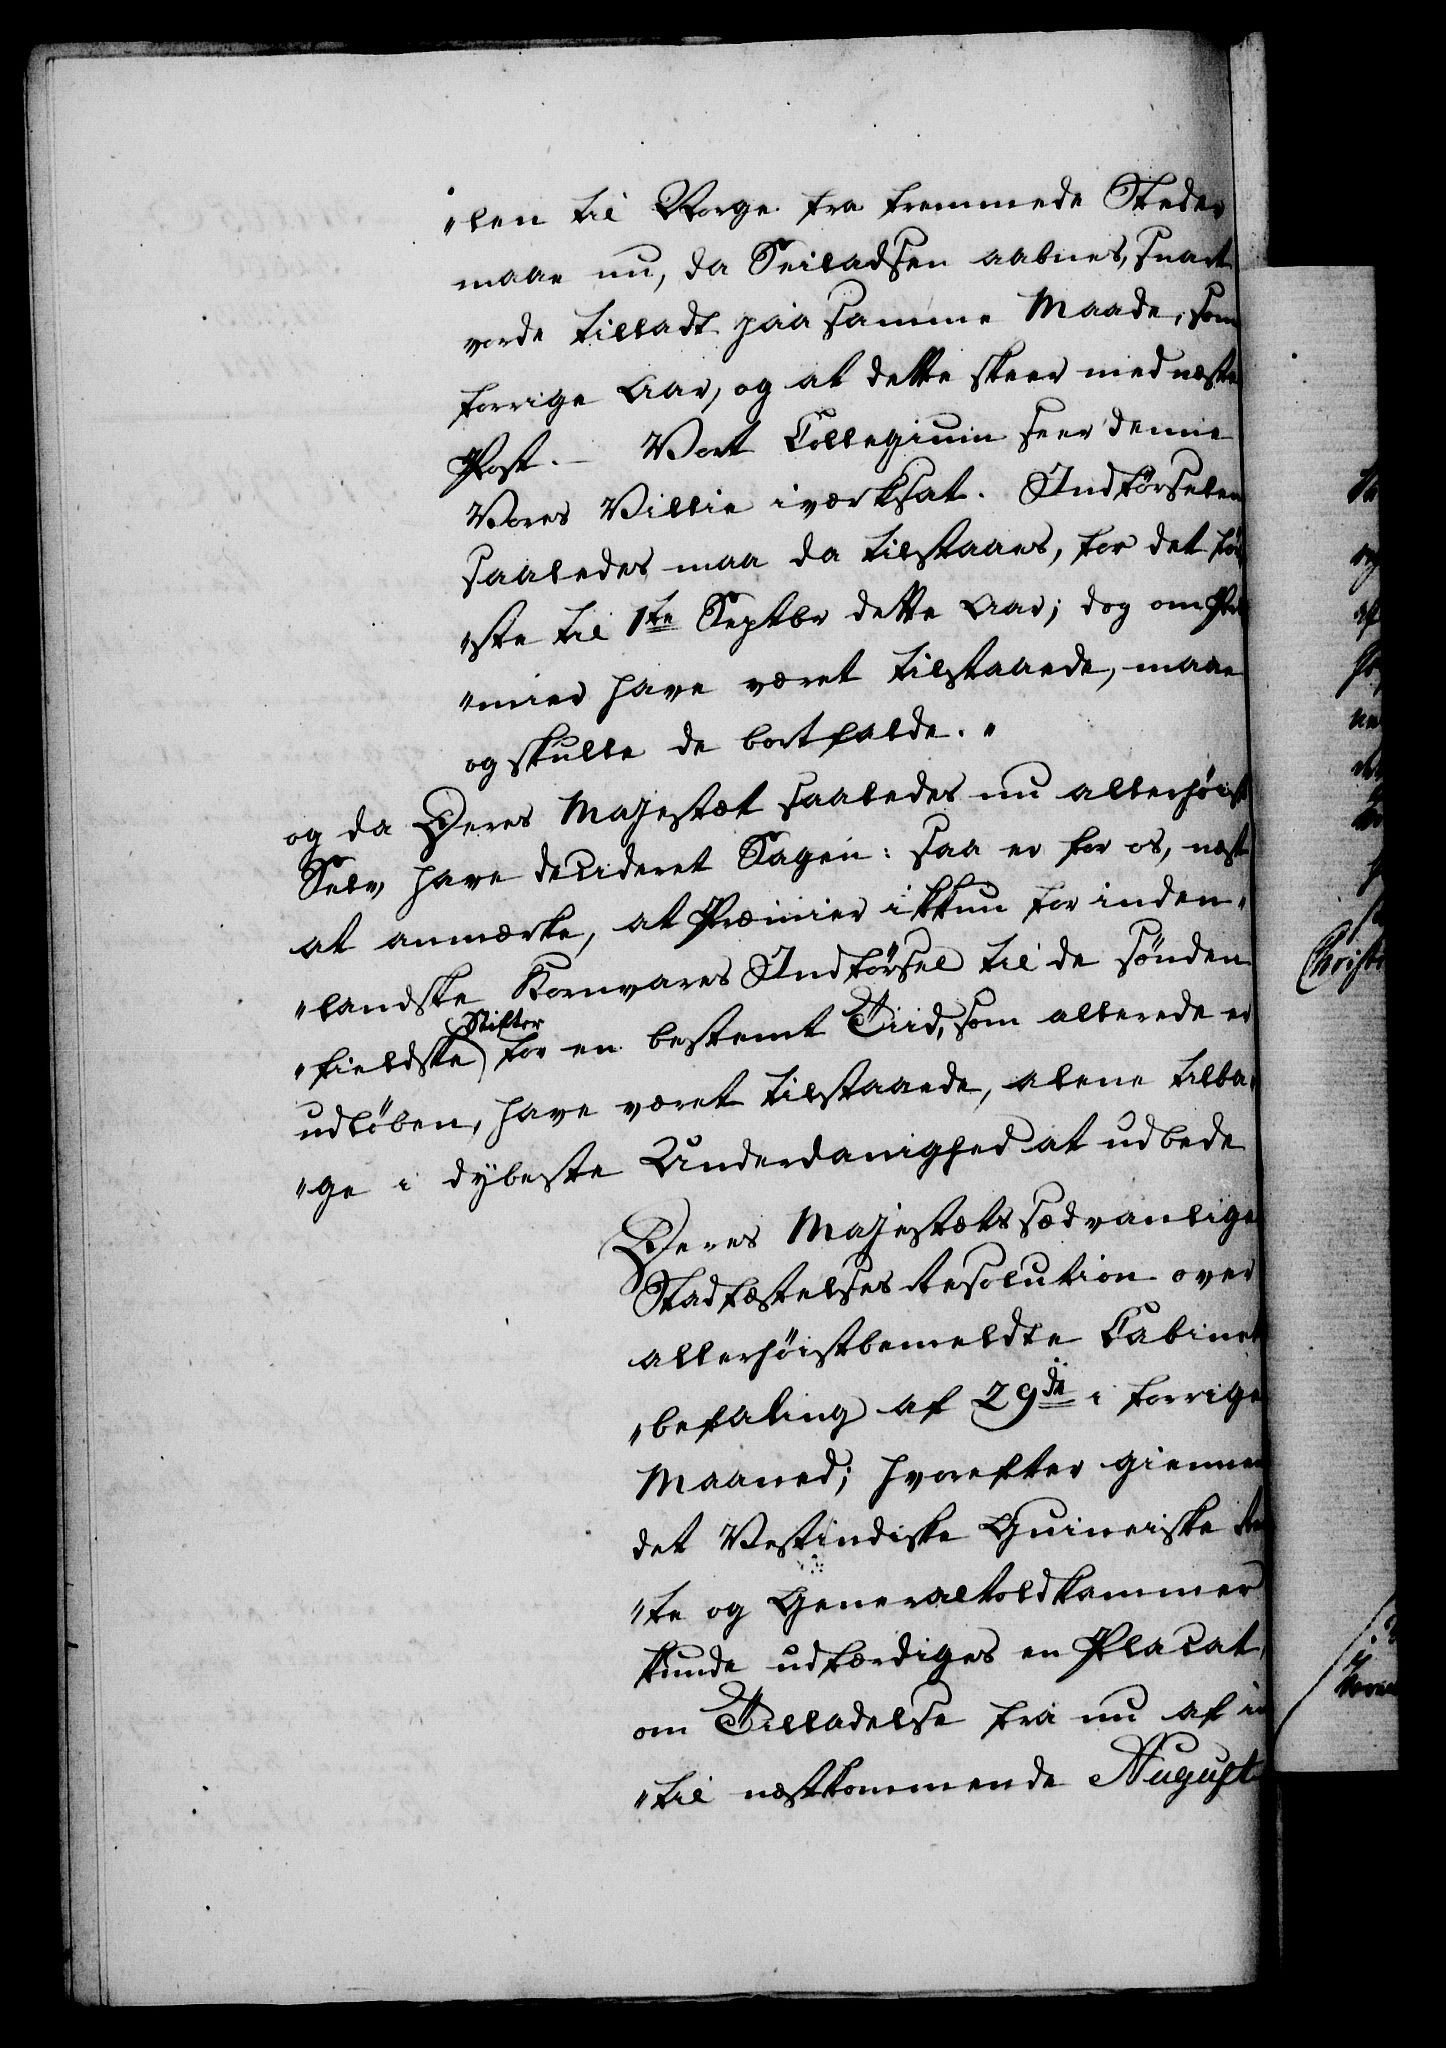 "len til Norge fra fremmede Steder
maae nu, da Seiladsen aabnes, snart
vorde tilladt paa samme Maade, som
forrige Aar, og at dette skeer med næste
Post. – Vort Collegium seer denne
Vores Villie iværksat. Indførselen
saaledes maa da tilstaaes, for det før
"ste til 1te Septbr dette Aar; dog om Præ
"mier have været tilstaaede, maae
og skulle de bortfalde."
og da Deres Majestæt saaledes nu allerhøist
Selv have decideret Sagen: saa er for os, næst
at anmærke, at Præmier ikkun for inden"
"landske Kornvares Indførsel til de sønden
"fieldske Stifter for en bestemt Tiid, som allerede er
udløben, have været tilstaaede, alene tilba"
"ge i dybeste Underdanighed at udbede
Deres Majestæts sædvanlige
Stadfæstelses Resolution over
allerhøistbemeldte Cabinets
"befaling af 29de i forrige
Maaned; hvorefter giennem
det Vestindiske Guineiske Ren
"te og Generaltoldkammer
kunde udfærdiges en Placat,
om Tilladelse fra nu af in
"til næstkommende August